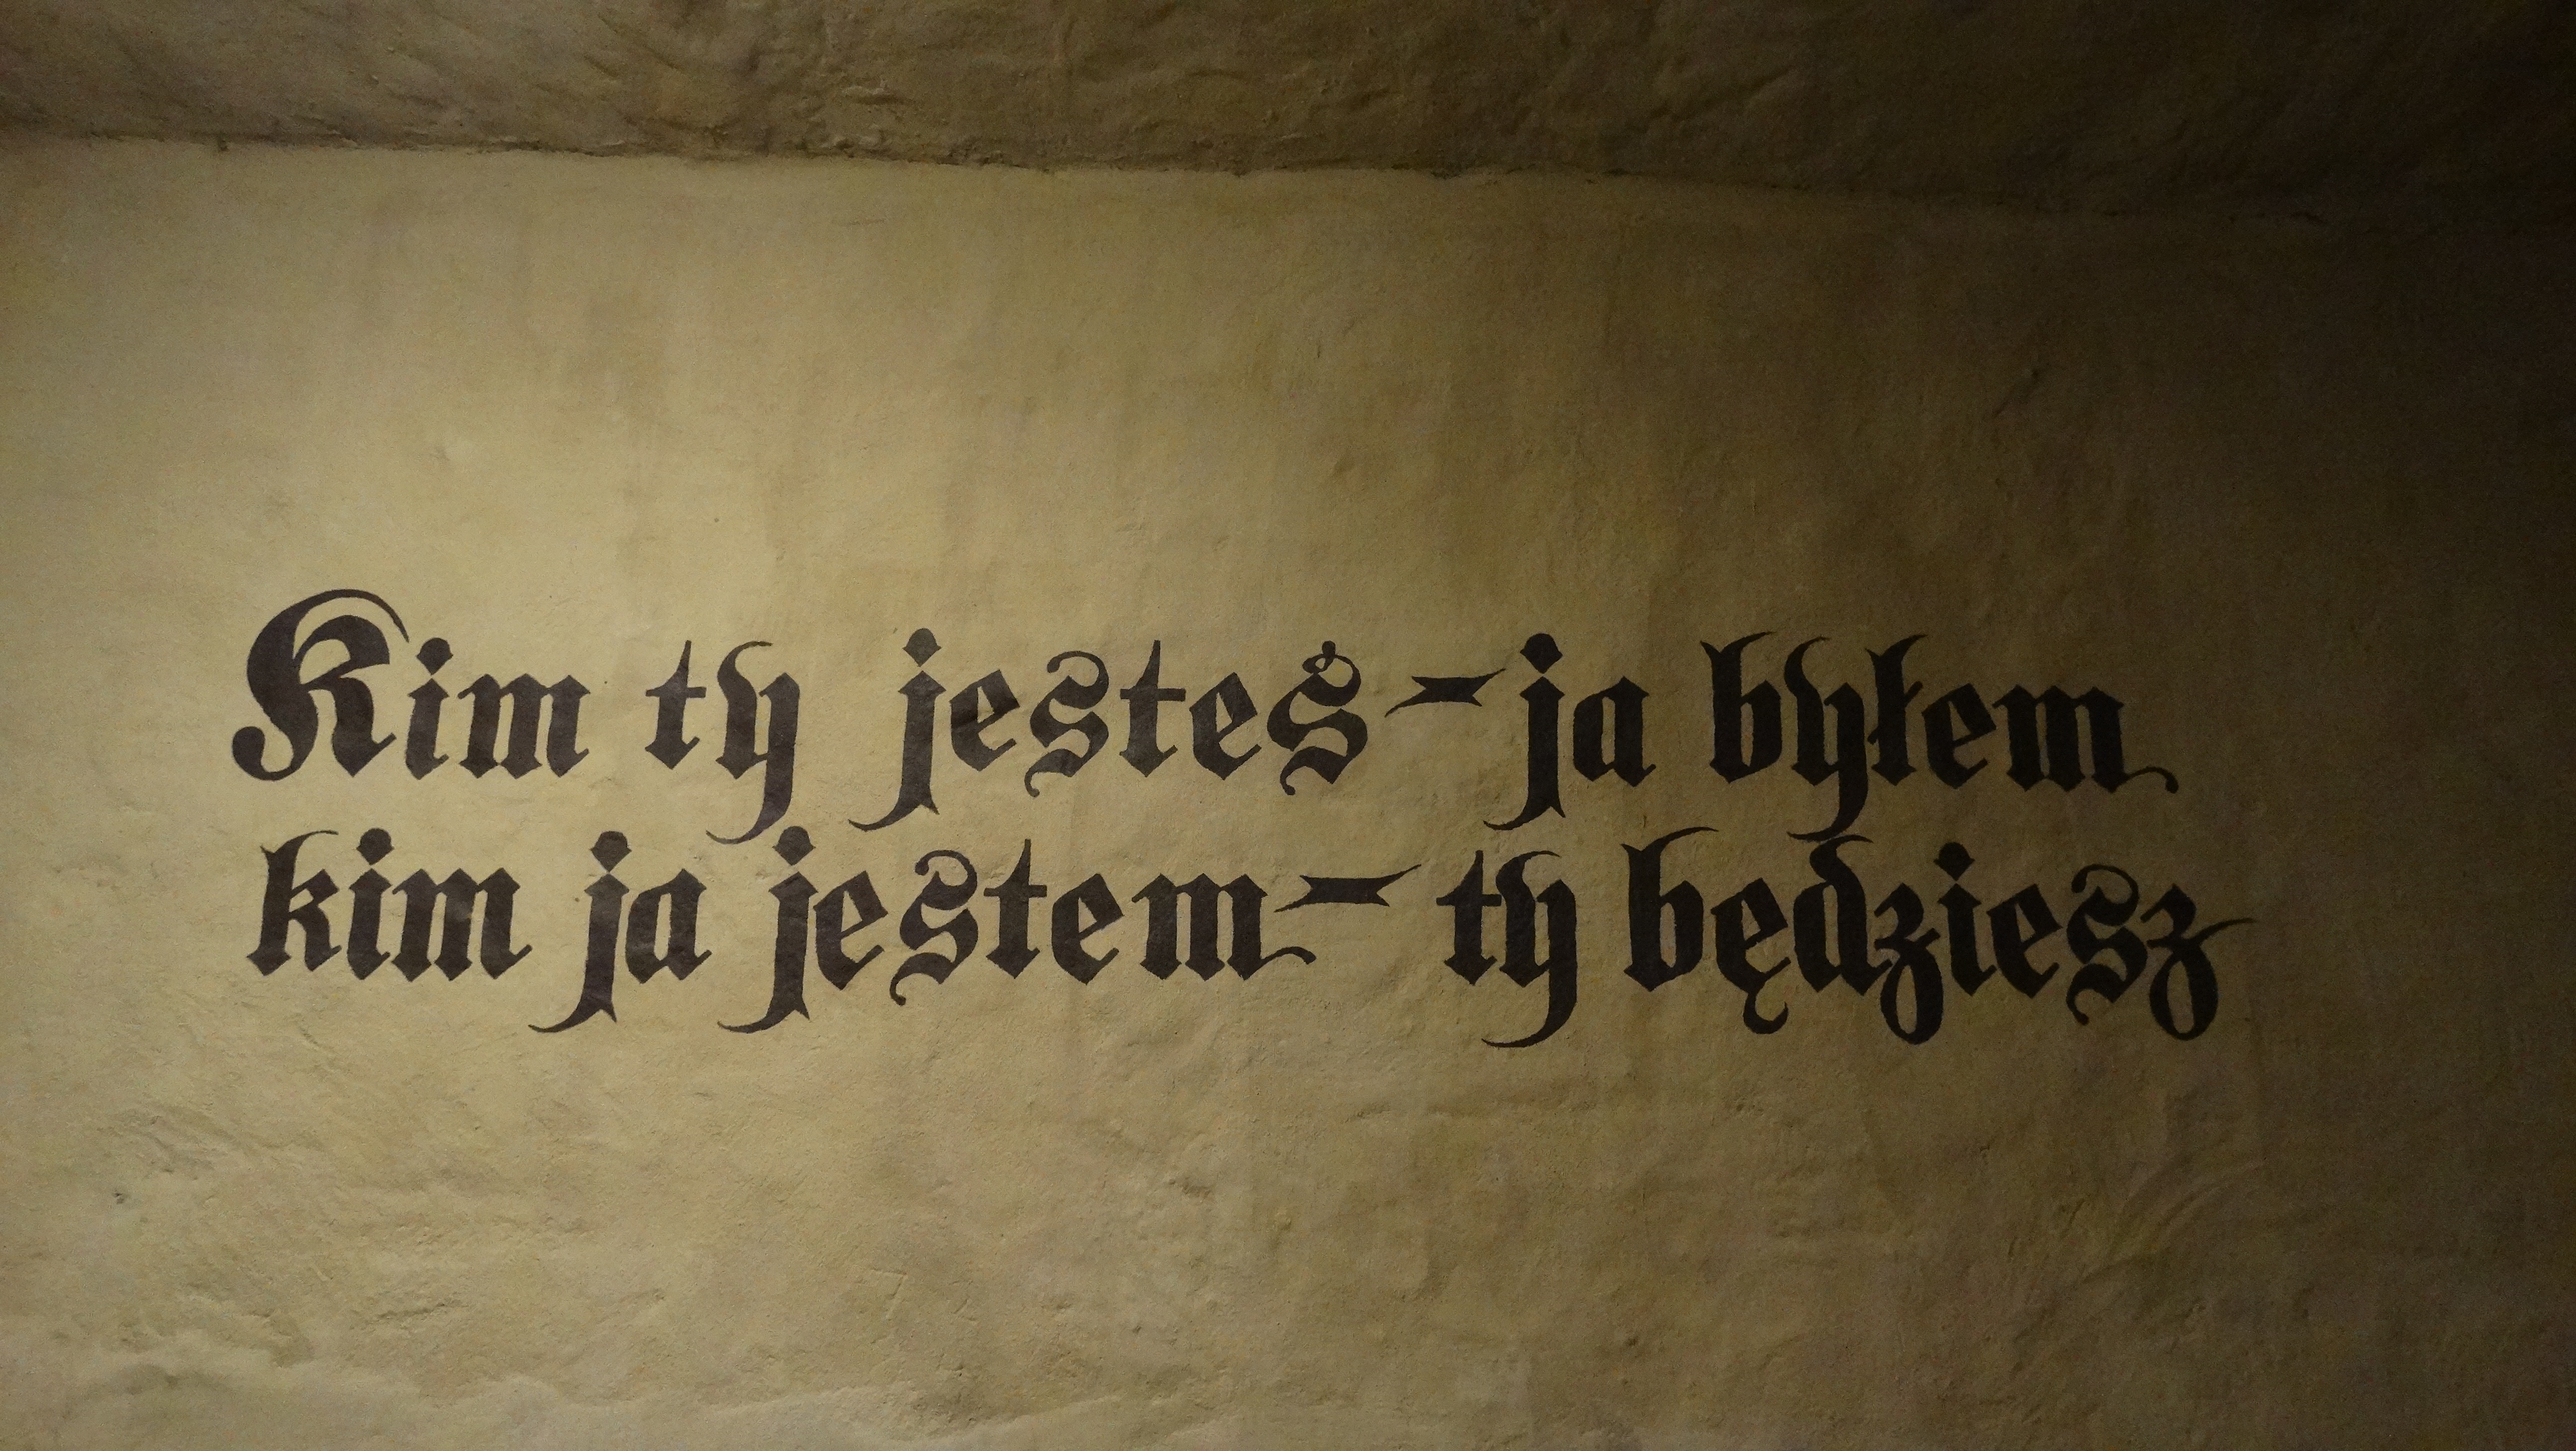 Kim ty jesteś-ja byłem
kim ja jestem-ty będziesz